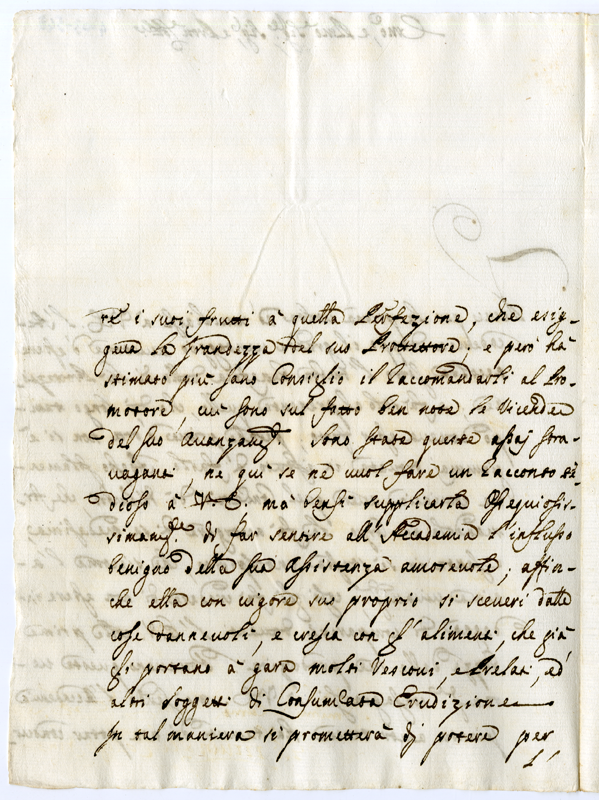 re i suoi frutti à quella Perfezione, che esig-
geua la Grandezza del suo Protettore; e però hà
stimato più sano Consiglio il raccomandarli al Pro-
motore, cui sono sul fatto ben note le Vicende
del suo Auanzam.to. Sono state queste assaj stra-
uaganti, ne quì se ne vuol fare un racconto te-
dioso à V. E. mà bensì supplicarla Ossequiosis-
simam.te di far sentire all'Accademia l'influsso
benigno della sua Assistenza amoreuole; affin-
che ella con vigore suo proprio si sceueri dalle
cose dannevoli, e cresca con gl'alimenti, che già
gli portano à gara molti Vescoui, e Prelati, ed
altri Soggetti di Consumata Erudizione
In tal maniera si prometterà dj potere per
l'